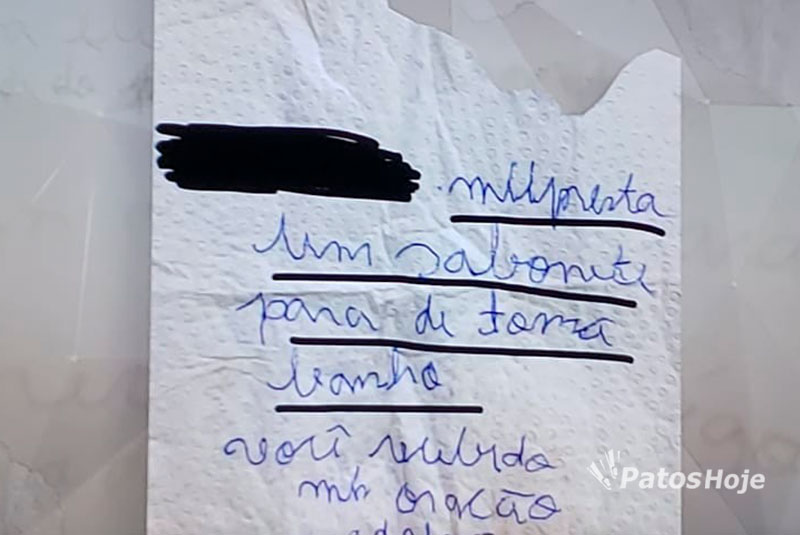 mllpresta
um sabonete
para de tomá
banho
você recebida
mh oração
PatosHoje